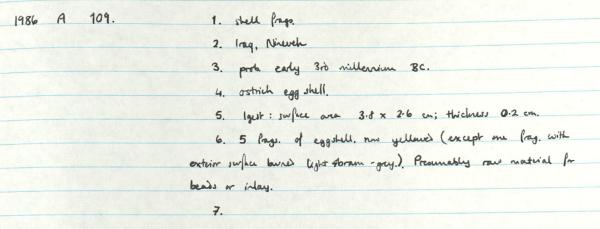 1986 A 109. 1. shell frags.
2. Iraq, Nineveh
3. prob. early 3rd millennium BC.
4. ostrich eggshell.
5. lgest: surface area 3.8 x 2.6 cm; thickness 0.2 cm.
6. 5 frags. of eggshell, now yellowed (except one frag. with
exterior surface burned light brown-grey). Presumably raw material for
beads or inlay.
7.